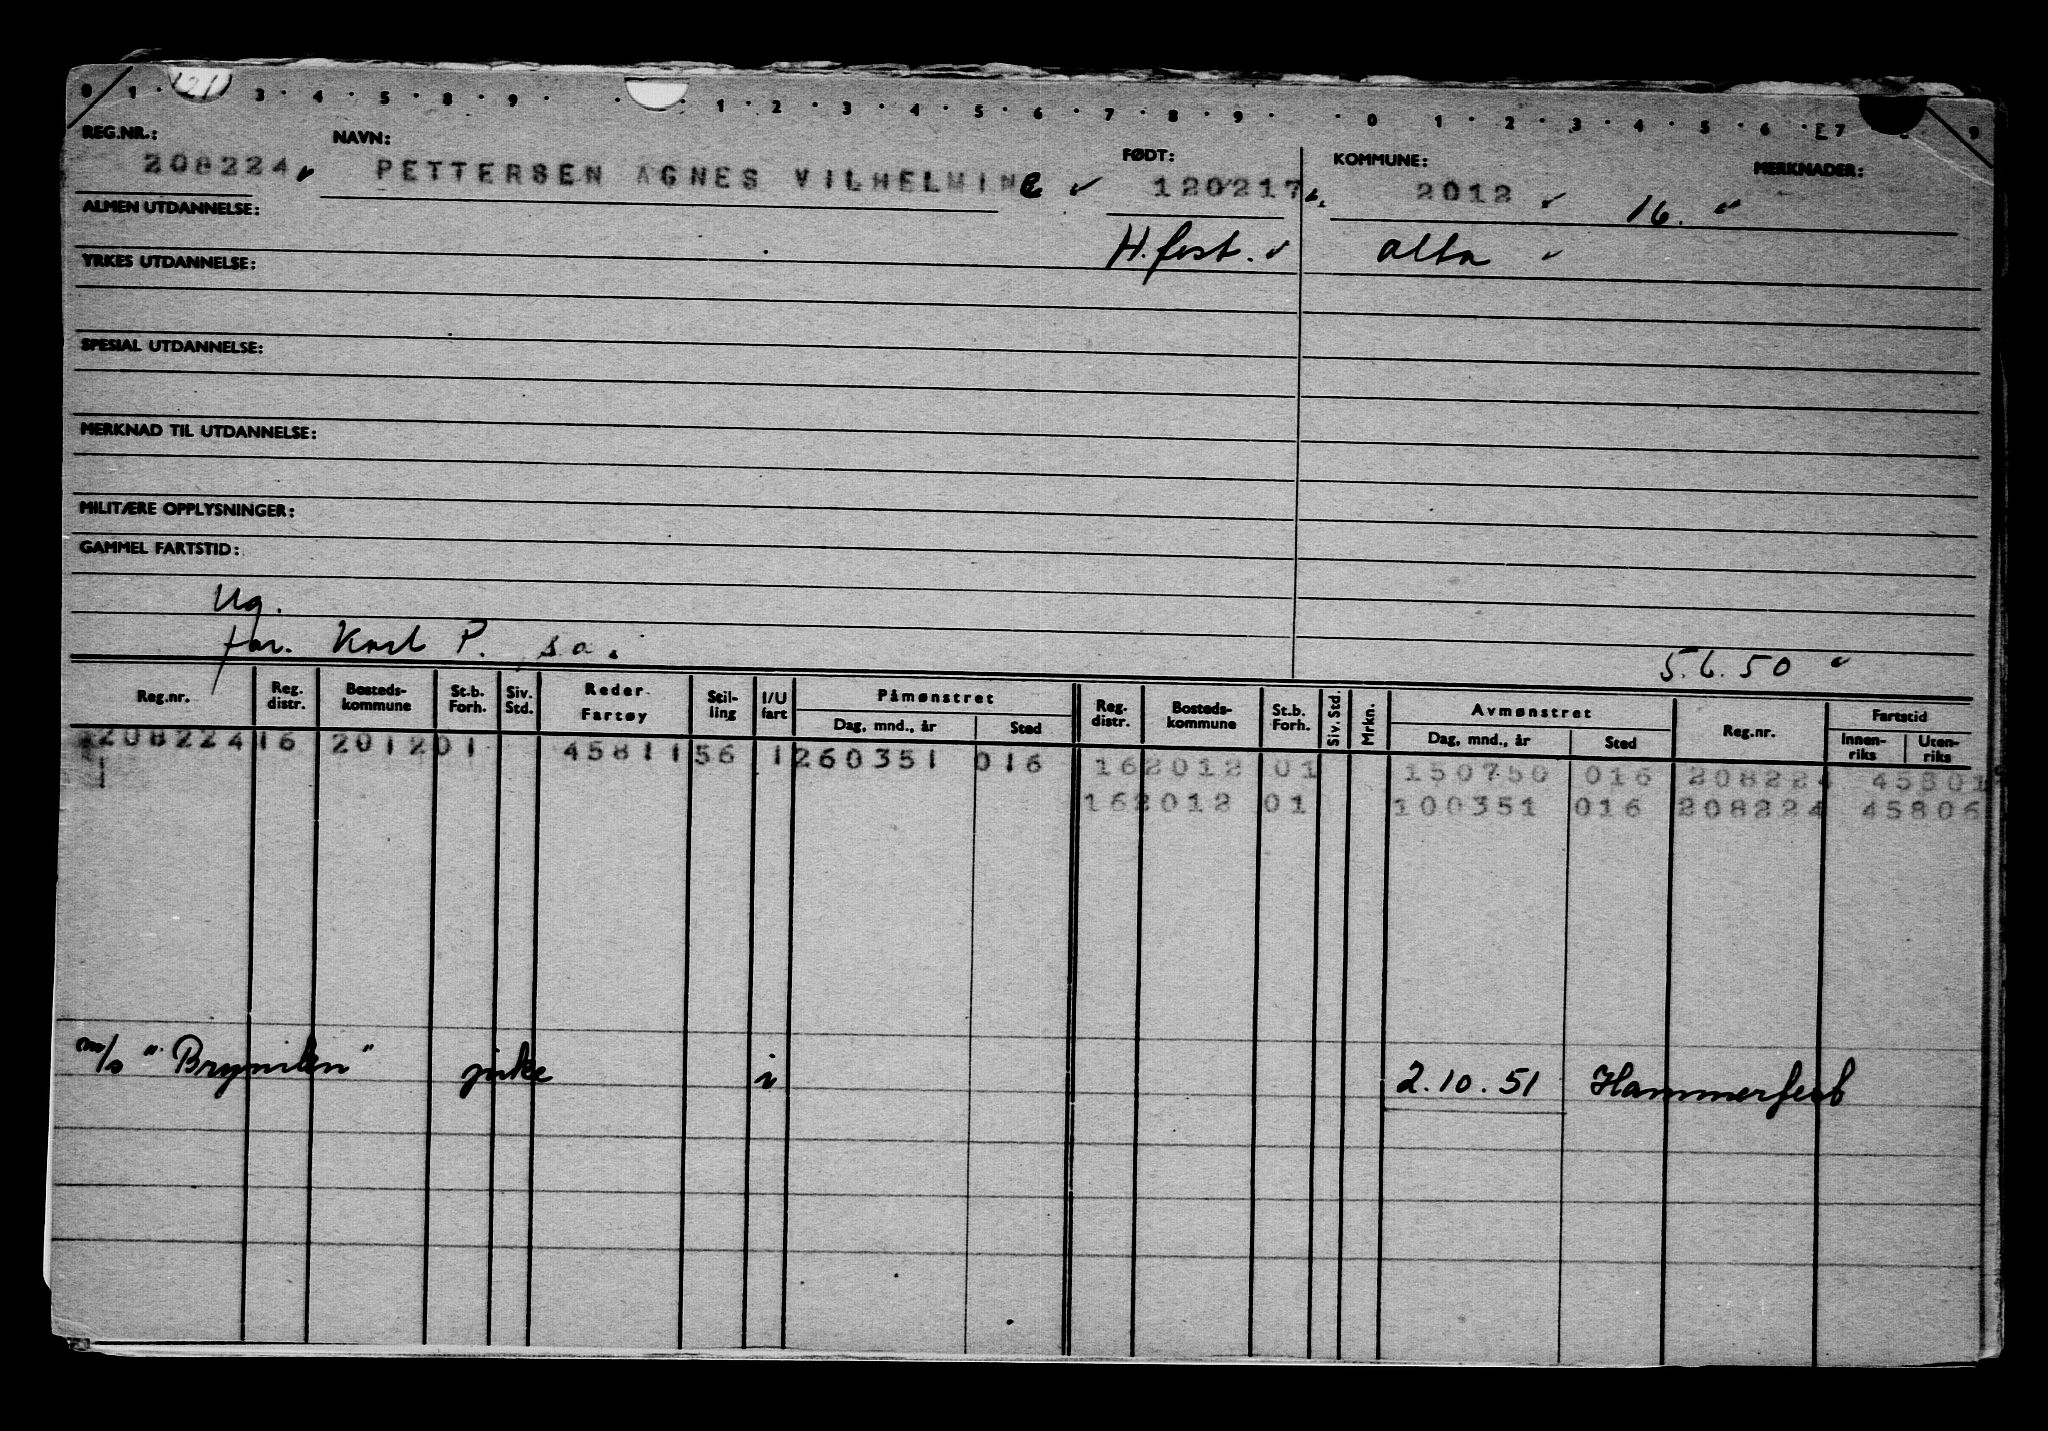 0 1 · 21 3 · 4 · 5 · 8 · 9 · · · 1 · 2 · 3 · 4 · 5 · 6 · 7 · 8 · 9 · · 0 1 · 2 · 3 · 4 · 5 · 6 · E7 9
REG.NR.: NAVN: FØDT: KOMMUNE: MERKNADER:
208224 PETTERSEN AGNES VILHELMINe 120217 2012 16.
ALMEN UTDANNELSE:
H.fest. Alta
YRKES UTDANNELSE:
SPESIAL UTDANNELSE:
MERKNAD TIL UTDANNELSE:
MILITÆRE OPPLYSNINGER:
GAMMEL FARTSTID:
Ug.
far. Karl P. s.a. 5.6.50
Reg.nr. Reg. distr. Bosteds-kommune St.b. Forh. Siv. Std. Reder Fartøy Stil-ling I/U fart Påmønstret Dag, mnd., år Sted Reg. distr. Bosteds-kommune St.b. Forh. Siv. Std. Mrkn. Avmønstret Dag, mnd., år Sted Reg.nr. Fartstid Innen-riks Uten-riks
208224 16 2012 01 45811 56 1 260351 016 16 2012 01 150750 016 208224 45801
1 16 2012 01 100351 016 208224 45806
m/s "Brynilen" pike i 2.10.51 Hammerfest